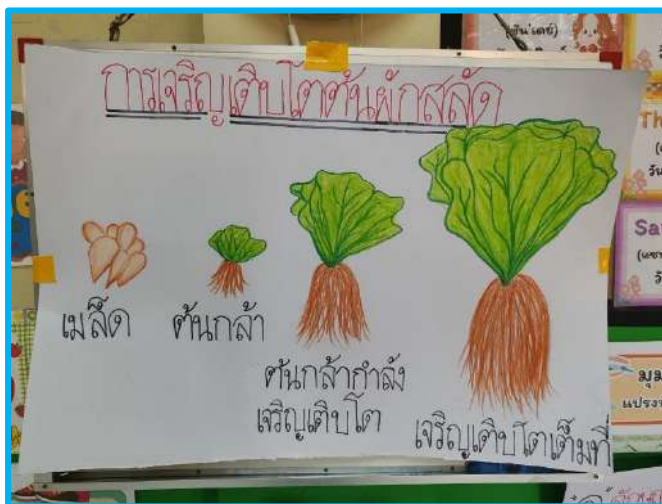 การเจริญเติบโตต้นผักสลัด
เมล็ด
ต้นกล้า
ต้นกล้ากำลัง
เจริญเติบโต
เจริญเติบโตเต็มที่
Th
Sa
มุม
แปรง